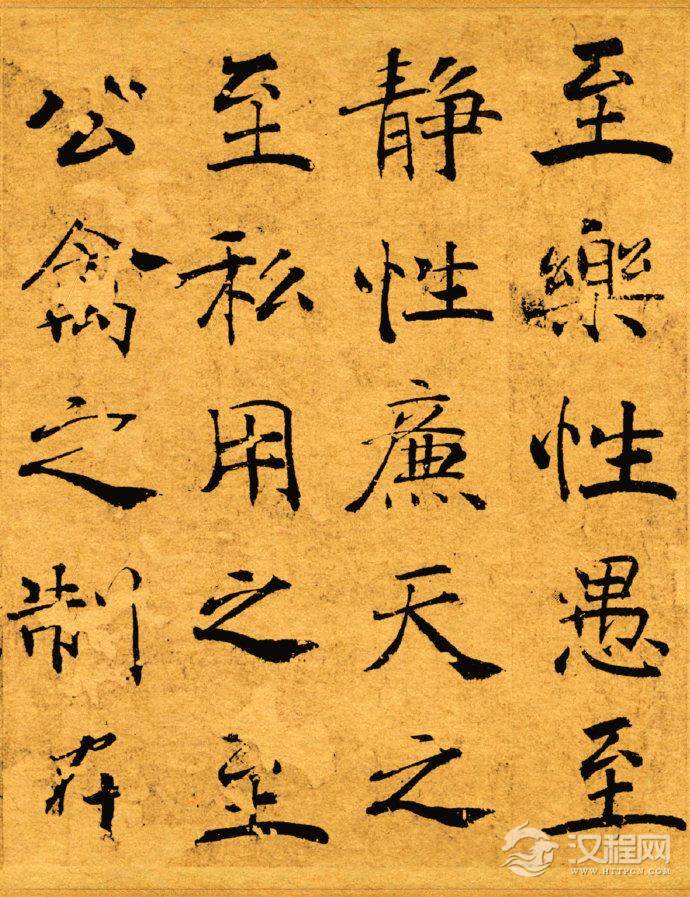 至樂性愚至
静性廉天之
至私用之至
公禽之制
汉程网
WWW.HTTPCN.COM